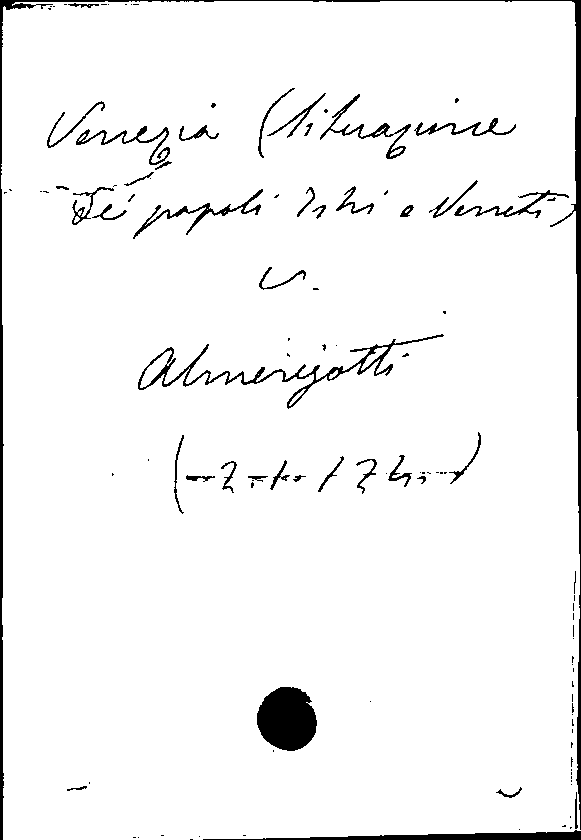 Venezia (situazione
dei popoli Istri e Veneti)
v.
Almerigotti